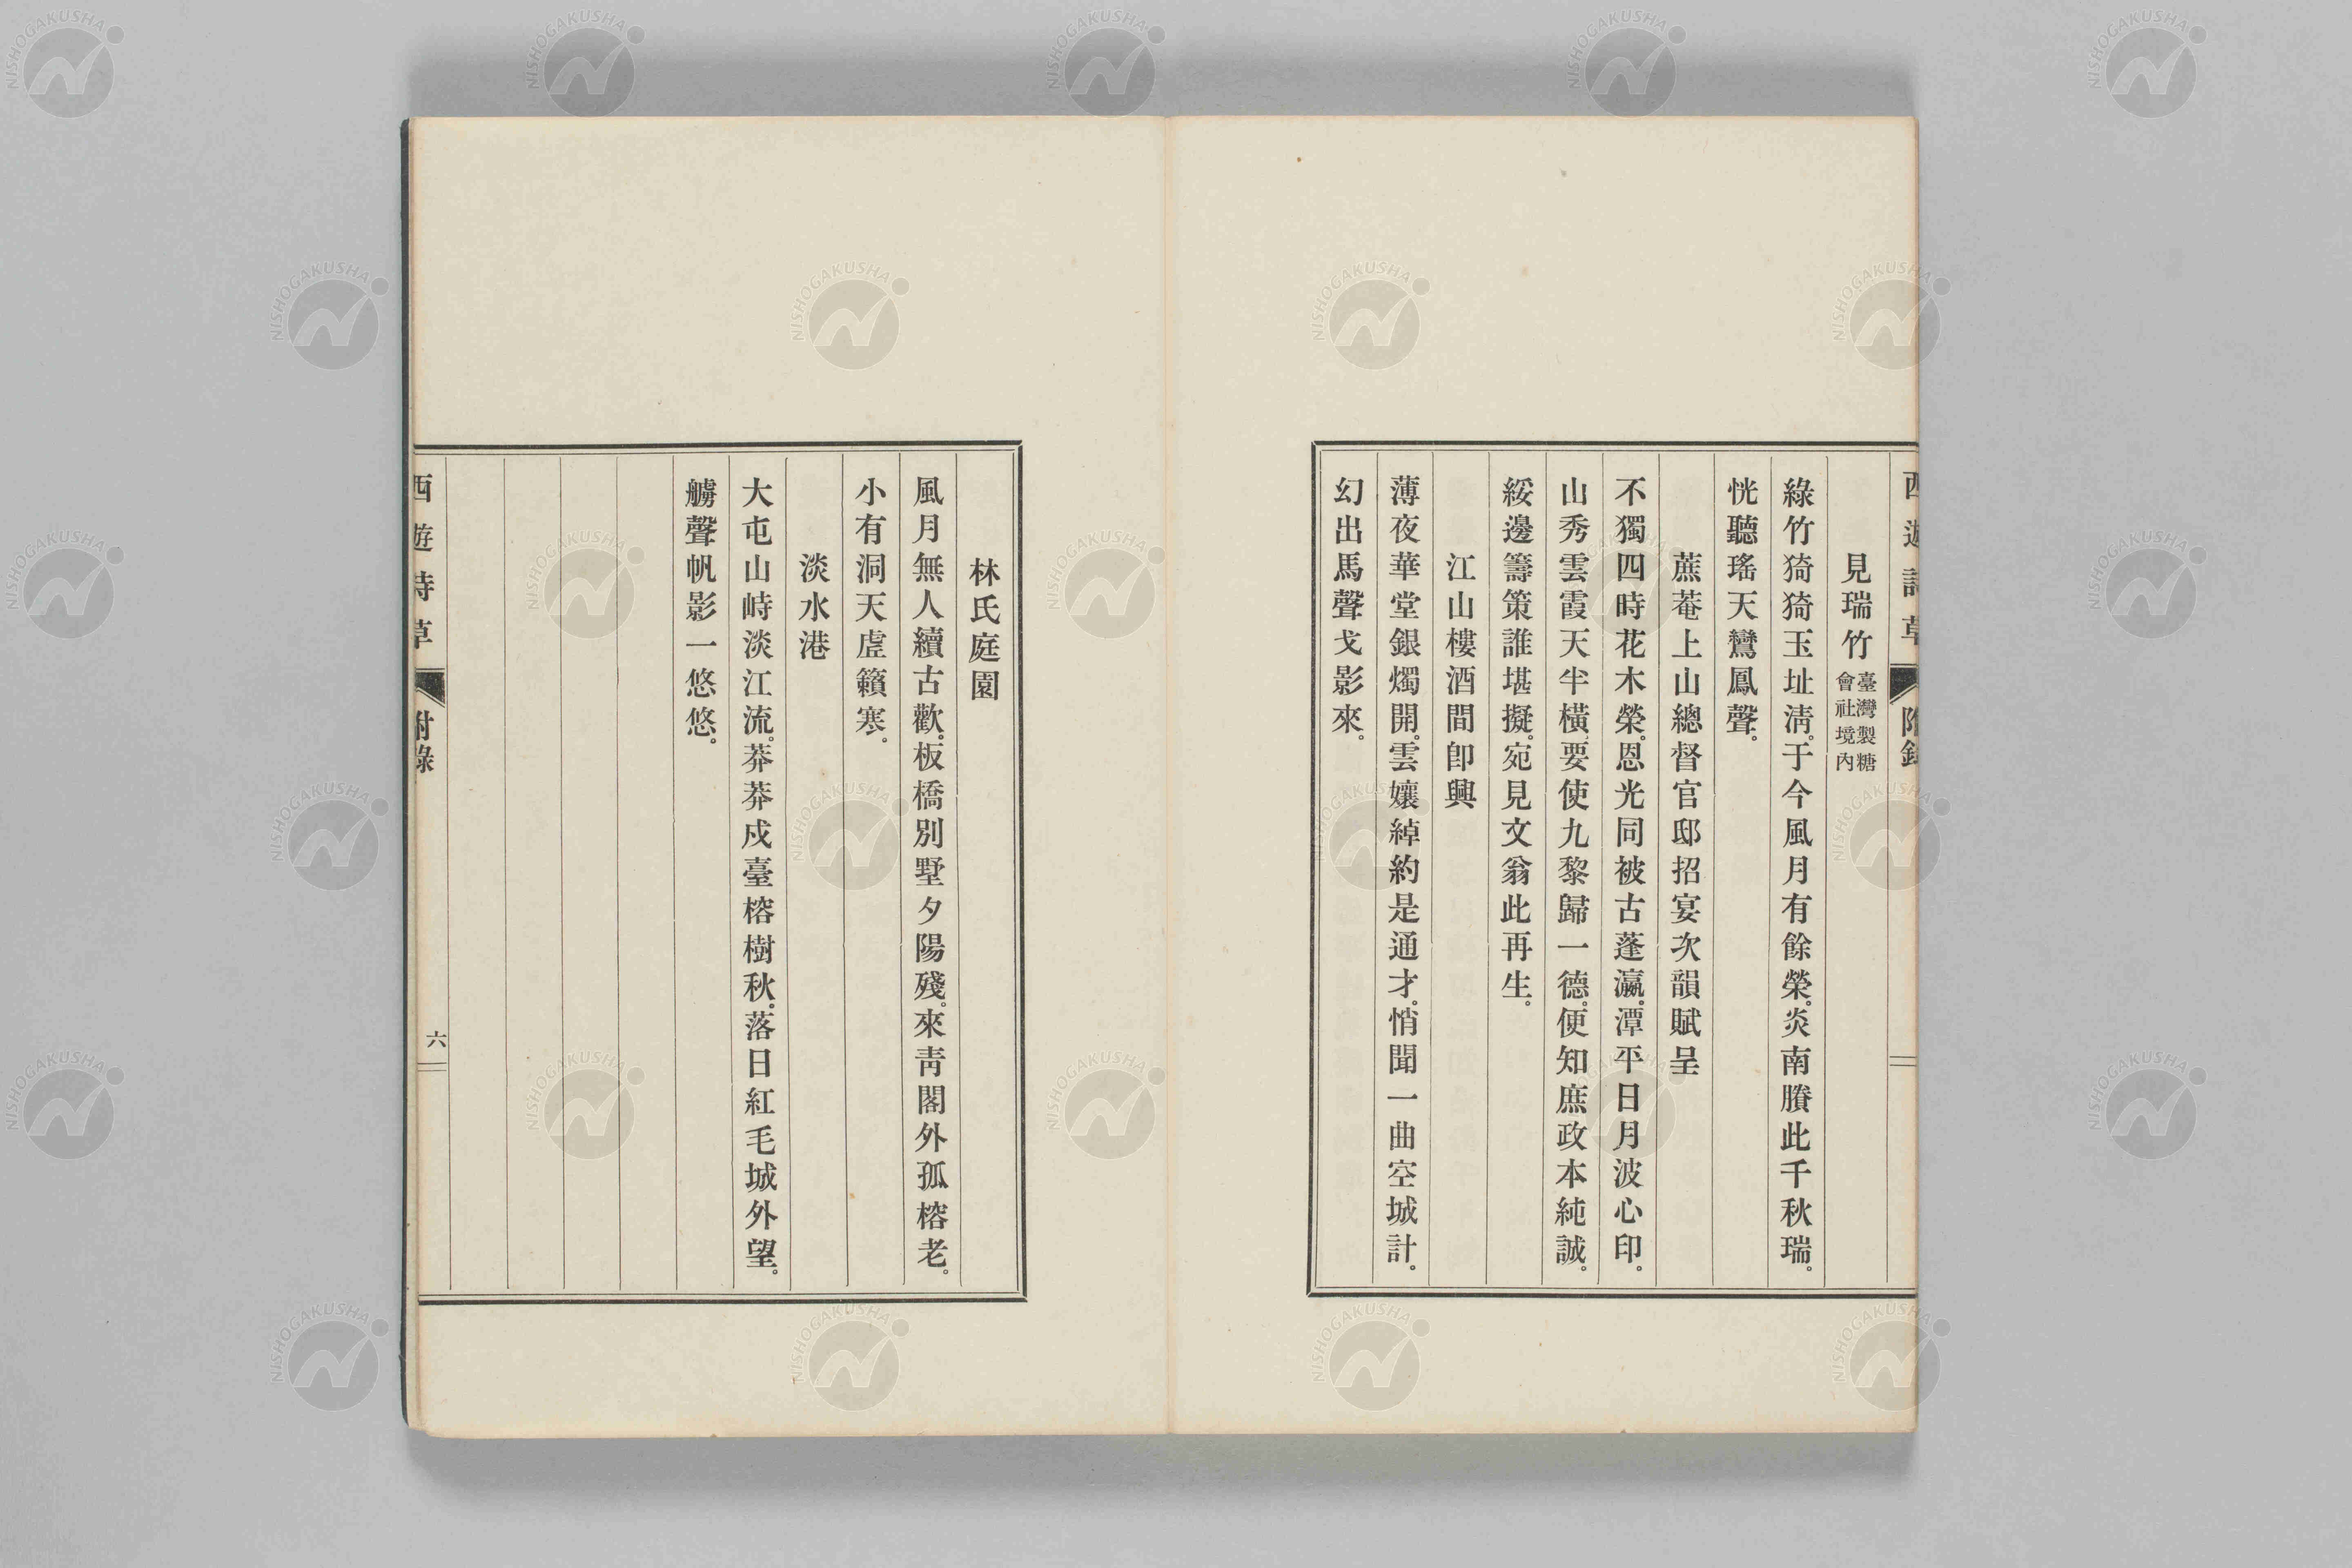 西遊詩草
附錄
見瑞竹
臺灣製糖
會社境內
綠竹猗猗玉址淸。于今風月有餘榮。炎南賸此千秋瑞。
恍聽瑤天鸞鳳聲。
蔗菴上山總督官邸招宴次韻賦呈
不獨四時花木榮。恩光同被古蓬瀛。潭平日月波心印。
山秀雲霞天半橫。要使九黎歸一德。便知庶政本純誠。
綏邊籌策誰堪擬。宛見文翁此再生。
江山樓酒間卽興
薄夜華堂銀燭開。雲孃綽約是通才。悄聞一曲空城計。
幻出馬聲戈影來。
林氏庭園
風月無人續古歡。板橋別墅夕陽殘。來靑閣外孤榕老。
小有洞天虛籟寒。
淡水港
大屯山峙淡江流。莽莽戍臺榕樹秋。落日紅毛城外望。
艣聲帆影一悠悠。
西遊詩草
附錄
六
NISHOGAKUSHA